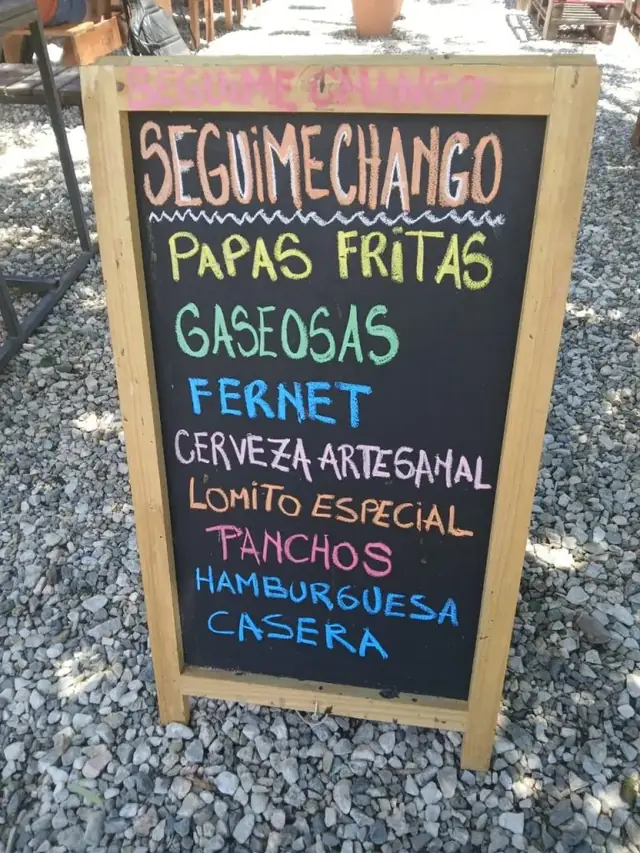 SEGUIME CHANGO
SEGUiMECHANGO
PAPAS FRiTAS
GASEOSAS
FERNET
CERVEZA ARTESANAL
LOMiTO ESPECiAL
PANCHOS
HAMBURGUESA
CASERA